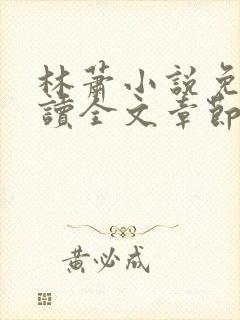 林蕭小說免
讀全文章節
黃必成